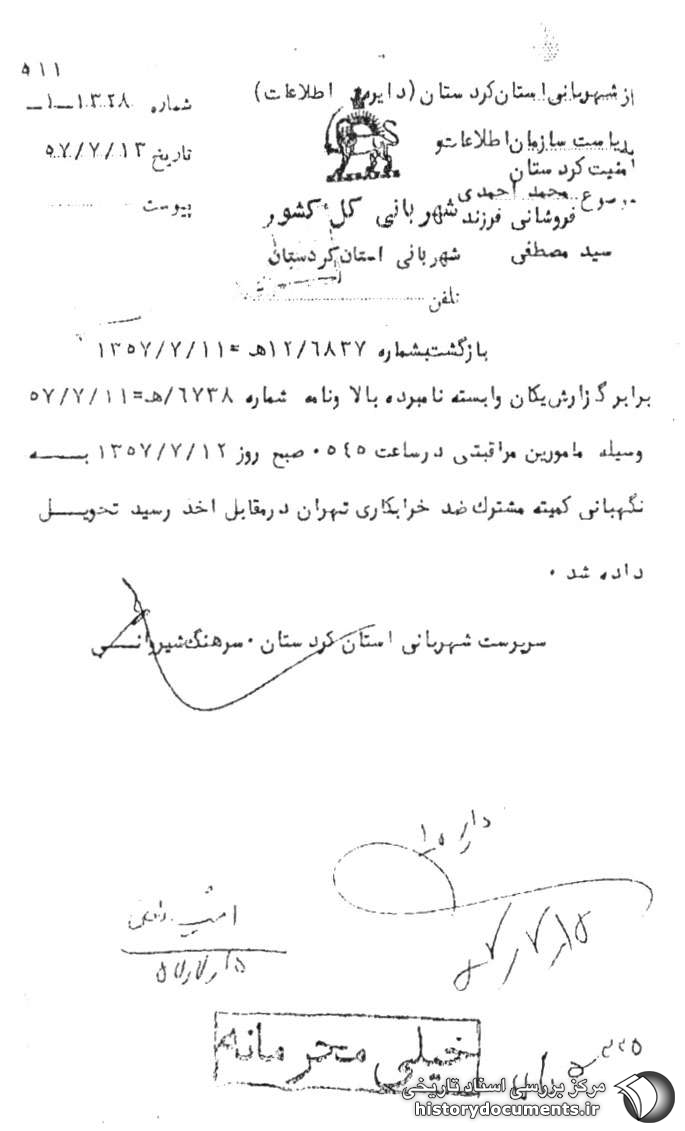 ۵۱۱
از شهربانی استان کردستان (دایره اطلاعات)
شماره ۱۰۳۲۸-۱-
بریاست سازمان اطلاعات و
امنیت کردستان
تاریخ ۵۷/۷/۱۳
موضوع محمد احمدی
فروشانی فرزند
سید مصطفی
پیوست
شهربانی کل کشور
شهربانی استان کردستان
تلفن
بازگشت بشماره ۱۲/۶۸۳۷هـ = ۱۳۵۷/۷/۱۱
برابر گزارش یکان وابسته نامبرده بالا ونامه شماره ۶۷۳۸/هـ=۵۷/۷/۱۱
وسیله مامورین مراقبتی درساعت ۰۵۴۵ صبح روز ۱۳۵۷/۷/۱۲ بـــه
نگهبانی کمیته مشترك ضد خرابکاری تهران درمقابل اخذ رسید تحویـــل
داده شد ۰
سرپرست شهربانی استان کردستان ۰ سرهنگ شیروانـــی
۵۷/۷/۱۵
خیلی محرمانه
مرکز بررسی اسناد تاریخی
historydocuments.ir